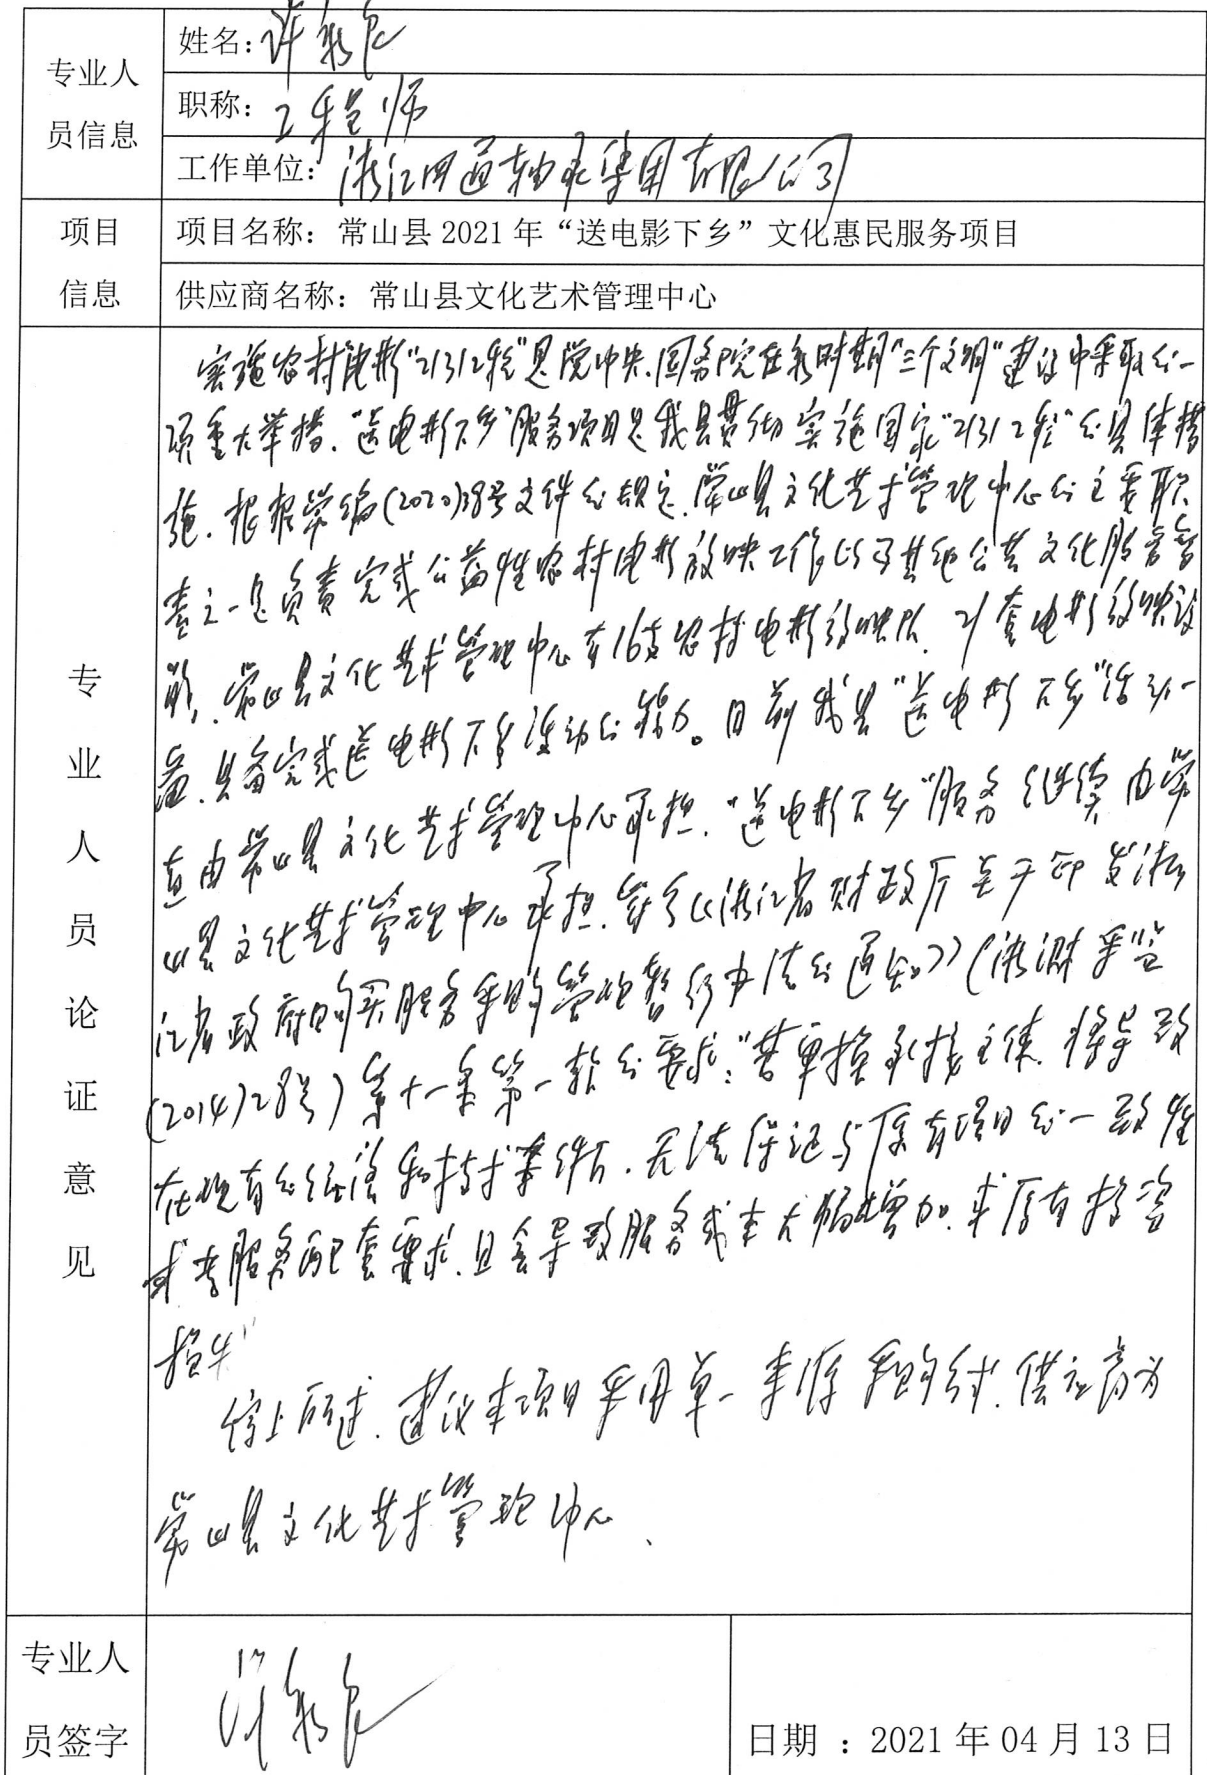 专业人
员信息
姓名：许
职称：工程师
工作单位：浙江四通轴承集团有限公司
项目
信息
项目名称：常山县 2021 年“送电影下乡”文化惠民服务项目
供应商名称：常山县文化艺术管理中心
专业人员论证意见
实施农村电影“2131工程”是党中央.国务院在新时期“三个文明”建设中采取的一
项重大举措.“送电影下乡”服务项目是我县贯彻实施国家“2131工程”的具体措
施.根据常编(2020)38号文件的规定.常山县文化艺术管理中心的主要职
责之一是负责完成公益性农村电影放映工作以及其他公共文化服务
.常山县文化艺术管理中心有16支农村电影放映队.21套电影放映设
备.具备完成送电影下乡活动的能力。目前我县“送电影下乡”活动一
直由常山县文化艺术管理中心承担.“送电影下乡”服务继续由常
山县文化艺术管理中心承担.符合《浙江省财政厅关于印发浙
江省政府购买服务采购管理暂行办法的通知》(浙财采监
(2014)28号)第十一条第一款的要求:“若更换承接主体.将导致
在现有的经济和技术条件下.无法保证与原有项目的一致性
或者服务配套要求.且会导致服务成本大幅增加.或原有投资
损失”
综上所述.建议本项目采用单一来源采购方式.供应商为
常山县文化艺术管理中心.
专业人
员签字
许
日期 ：2021 年 04 月 13 日